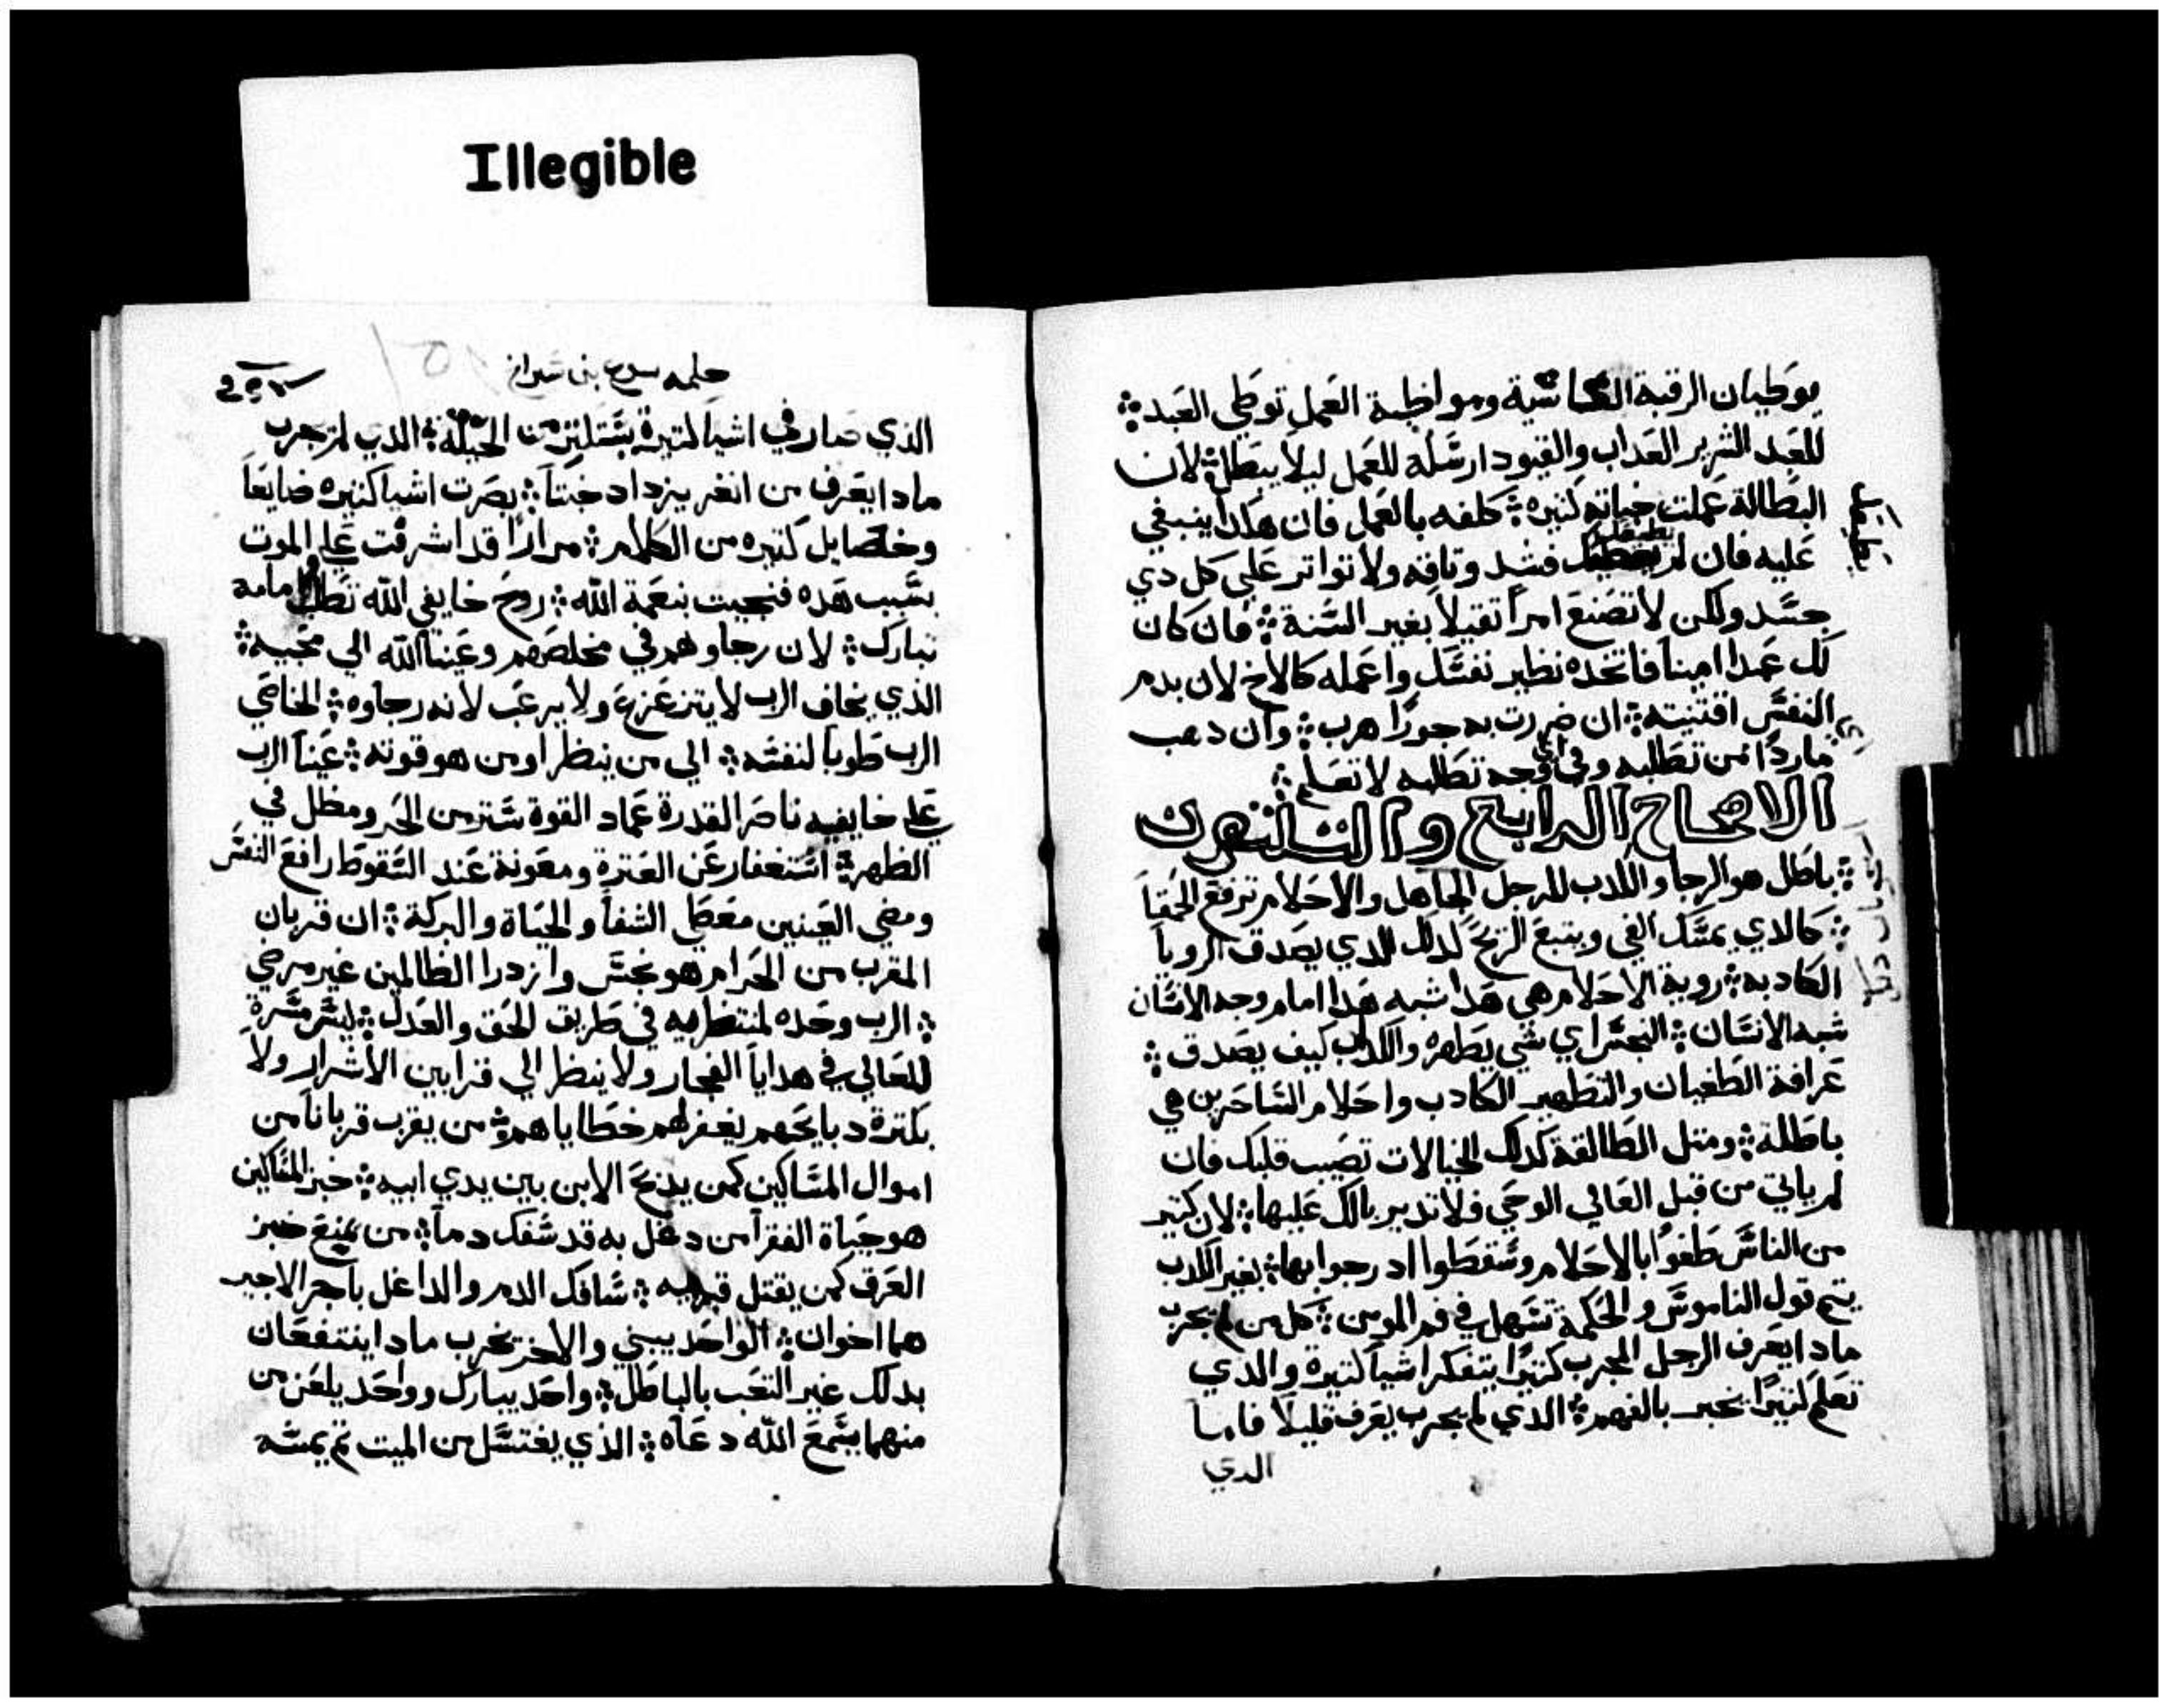 Illegible
يوطيان الرقبة القاسية ومواظبة العمل توطي العبد
للعبد الشرير العداب والقيود ارسله للعمل ليلا يبطل لان
البطالة عملت خباته كتيره كلفه بالعمل فان هكدا ينبغي
عليه فان لم يطيعك فشد وتاقه ولا تواتر علي كل دي
جسد ولكن لا تصنع امرا تقيلا بغير السنة فان كان
لك عبدا امينا فاتخده نظير نفسك واعمله كالاخ لان بدم
النفس اقتنيته ان ضررت به جورا هرب وان دهب
ماردا من تطلبه وفي اي وجه تطلبه لا تعلم
الاصحاح الرابع والتلتون
باطل هو الرجا والكدب للرجل الجاهل والاحلام ترفع الحمقيا
كالدي يمسك الفي ويتبع الريح لدلك الدي يصدق الرويا
الكادبه روية الاحلام هي هدا شبه هدا امام وجه الانسان
شبه الانسان النجس اي شي يطهره والكداب كيف يصدق
عرافة الطغيان والتطهير الكادب واحلام الساحرين هي
باطلة ومتل الطالقة كدلك الخيالات تصيب قلبك فان
لم ياتي من قبل العالي الوحي فلا تدير بالك عليها لان كتير
من الناس طغوا بالاحلام وسقطوا اد رجوا بها بغير الكدب
يتم قول الناموس والحكمة تسهل في فم المومن كل من لم يجرب
مادا يعرف الرجل المجرب كتيرا يتفكر اشيا كتيرة والدي
تعلم كتيرا يخبر بالفهم الدي لم يجرب يعرف قليلا فاما
الدي
حكمه يسوع بن شيراخ
الذي صار في اشيا كتيرة يستكتر من الحيلة الدي لم يجرب
مادا يعرف من انغر يزداد خبتا بصرت اشيا كتيره ضايعا
وخصايل كتيره من الكلام مرارا قد اشرفت علي الموت
بسبب هده فنجيت بنعمة الله روح خايفي الله تطلب وامامه
تبارك لان رجاوهم في مخلصهم وعينا الله الي محبيه
الذي يخاف الرب لا يتزعزع ولا يرعب لانه رجاوه الخاضي
الرب طوبا لنفسه الي من ينظر او من هو قوته عينا الرب
علي خايفيه ناصر القدرة عماد القوة ستر من الحر ومظل في
الظهر استغفار عن العترة ومعونة عند السقوط رافع النفس
ومضي العينين معطي الشفا والحياة والبركة ان قربان
المقرب من الحرام هو نجس وازدرا الظالمين غير مرضي
الرب وحده لمنتظريه في طريق الحق والعدل ليس مسرة
للعالي في هدايا الفجار ولا ينظر الي قرابين الاشرار ولا
بكترة دبايحهم يغفر لهم خطاياهم من يقرب قربانا من
اموال المساكين كمن يدبح الابن بين يدي ابيه خبز المساكين
هو حياة الفقرا من دغل به قد سفك دما من يمنع خبز
العرق كمن يقتل قريبه سافك الدم والداغل باجر الاجير
هما اخوان الواحد يبني والاخر يخرب مادا ينتفعان
بدلك غير التعب بالباطل واحد يبارك وواحد يلعن من
منهما يسمع الله دعاه الذي يغتسل من الميت تم يمسه